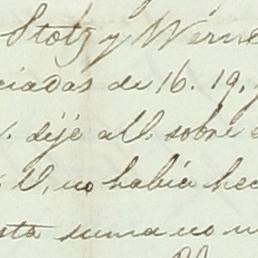 Stotz y Werne
ciadas de 16. 19. y
V. dije a V. sobre e
V. no habia hec
sta suma no